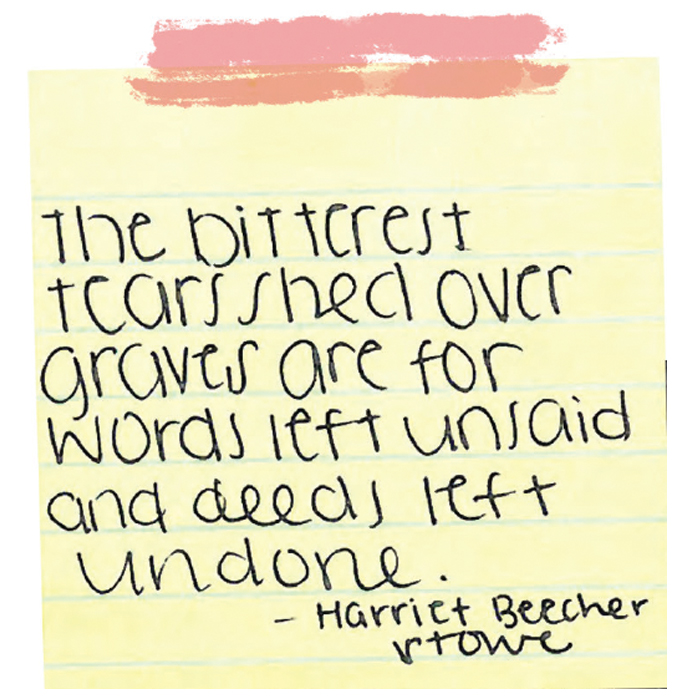 The bitterest
tears shed over
graves are for
words left unsaid
and deeds left
undone.
- Harriet Beecher
Stowe